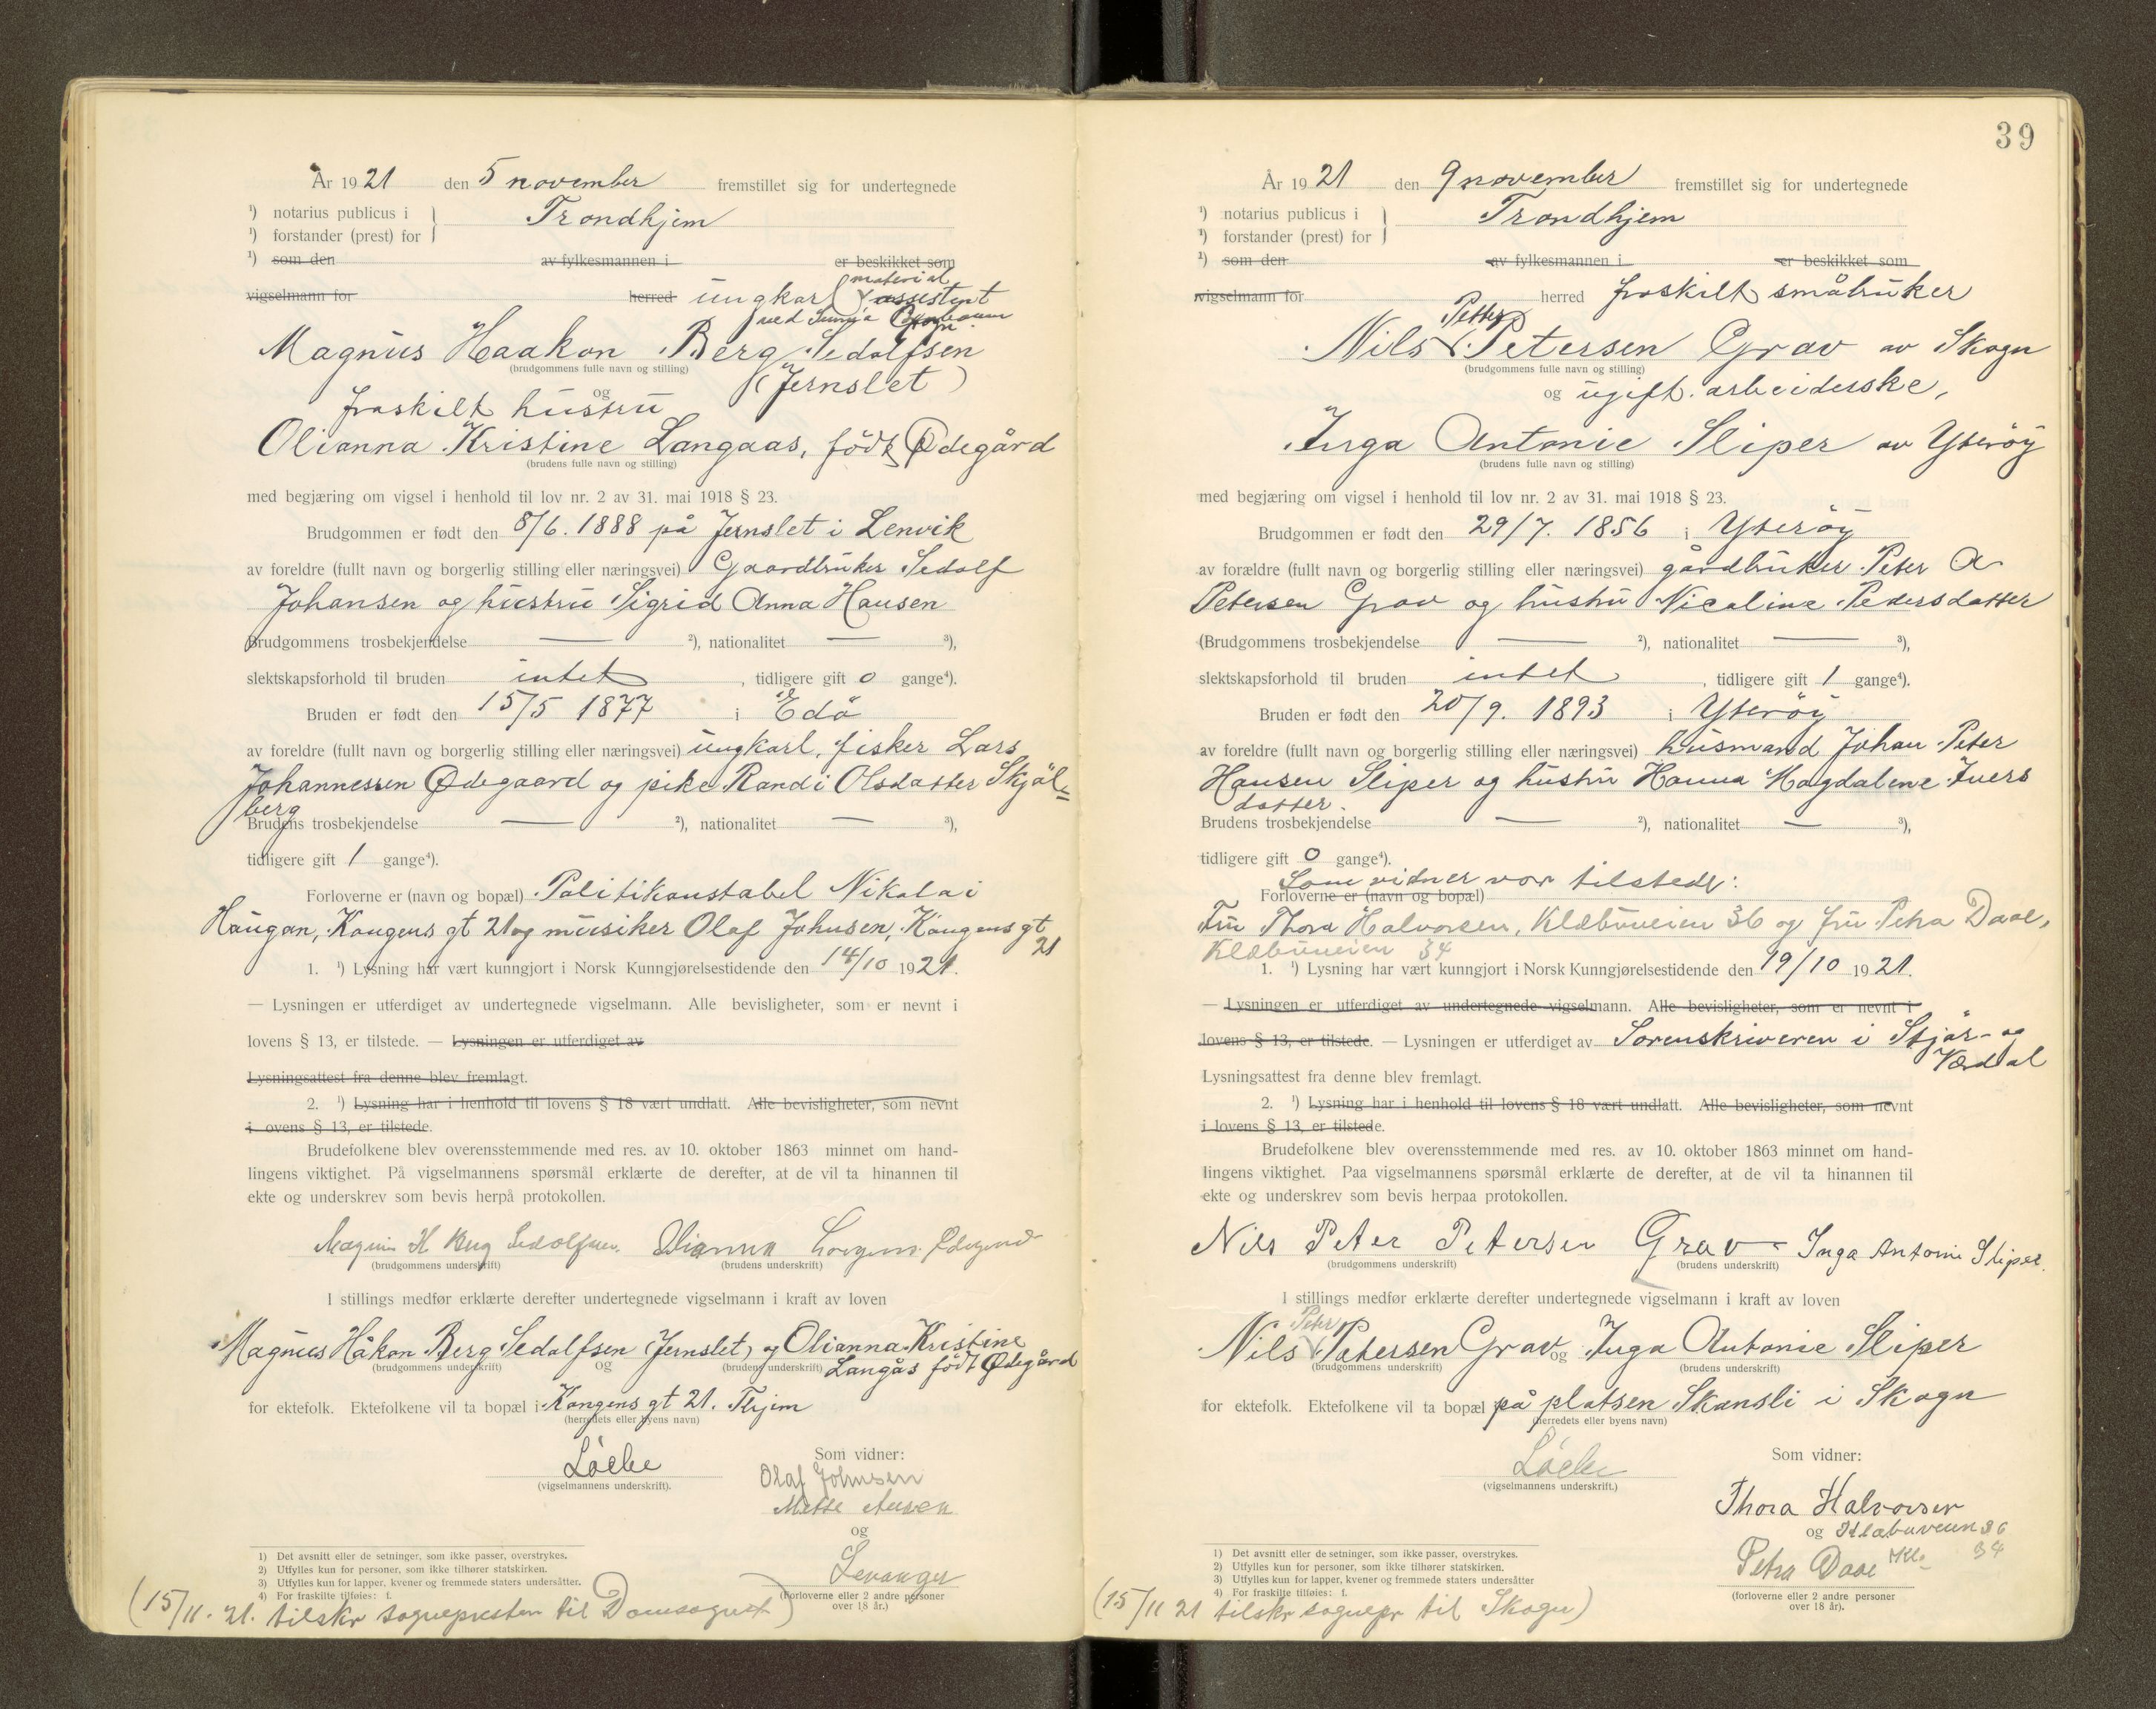 År 1921 den 5 november fremstillet sig for undertegnede
¹) notarius publicus i
¹) forstander (prest) for
Trondhjem
¹) som den av fylkesmannen i er beskikket som
material
vigselmann for herred ungkar assistent
ved
Magnus Haakon Berg Sedolfsen
(brudgommens fulle navn og stilling)
(Jernslet)
og
fraskilt hustru
Olianna Kristine Langaas, født Ødegård
(brudens fulle navn og stilling)
med begjæring om vigsel i henhold til lov nr. 2 av 31. mai 1918 § 23.
Brudgommen er født den 8/6. 1888 på Jernslet i Lenvik
av foreldre (fullt navn og borgerlig stilling eller næringsvei) Gaardbruker Sedolf
Johansen og hustru Sigrid Anna Hansen
Brudgommens trosbekjendelse — ²), nationalitet — ³),
slektskapsforhold til bruden intet, tidligere gift 0 gange⁴).
Bruden er født den 15/5 1877 i Edø
av foreldre (fullt navn og borgerlig stilling eller næringsvei) ungkarl, fisker Lars
Johannessen Ødegaard og pike Randi Olsdatter Skjøl=
berg
Brudens trosbekjendelse — ²), nationalitet — ³),
tidligere gift 1 gange⁴).
Forloverne er (navn og bopæl) Politikonstabel Nikolai
Haugan, Kongens gt 21 og musiker Olaf Johnsen, Kongens gt
21
1. ¹) Lysning har vært kunngjort i Norsk Kunngjørelsestidende den 14/10 1921.
— Lysningen er utferdiget av undertegnede vigselmann. Alle bevisligheter, som er nevnt i
lovens § 13, er tilstede. — Lysningen er utferdiget av
Lysningsattest fra denne blev fremlagt.
2. ¹) Lysning har i henhold til lovens § 18 vært undlatt. Alle bevisligheter, som nevnt
i ovens § 13, er tilstede.
Brudefolkene blev overensstemmende med res. av 10. oktober 1863 minnet om hand-
lingens viktighet. På vigselmannens spørsmål erklærte de derefter, at de vil ta hinannen til
ekte og underskrev som bevis herpå protokollen.
Magnus H Berg Sedolfsen. Olianna
(brudgommens underskrift) (brudens underskrift)
I stillings medfør erklærte derefter undertegnede vigselmann i kraft av loven
Magnus Håkon Berg Sedolfsen (Jernslet) og Olianna Kristine
(brudgommens underskrift) og (brudens underskrift) Langås født Ødegård
for ektefolk. Ektefolkene vil ta bopæl i Kongens gt 21. Thjem
(herredets eller byens navn)
Som vidner:
(vigselmannens underskrift).
Olaf Johnsen
Mette
og
(Forloverne eller 2 andre personer
over 18 år.)
1) Det avsnitt eller de setninger, som ikke passer, overstrykes.
2) Utfylles kun for personer, som ikke tilhører statskirken.
3) Utfylles kun for lapper, kvener og fremmede staters undersåtter.
4) For fraskilte tilføies: f.
(15/11. 21. tilskr sognepresten til Domsognet)
39
År 1921 den 9 november fremstillet sig for undertegnede
¹) notarius publicus i
¹) forstander (prest) for
Trondhjem
¹) som den av fylkesmannen i er beskikket som
vigselmann for herred fraskilt småbruker
Peter
Nils Petersen Grav av Skogn
(brudgommens fulle navn og stilling)
og ugift arbeiderske,
Inga Antonie Sliper av Yterøy
(brudens fulle navn og stilling)
med begjæring om vigsel i henhold til lov nr. 2 av 31. mai 1918 § 23.
Brudgommen er født den 29/7. 1856 i Yterøy
av forældre (fullt navn og borgerlig stilling eller næringsvei) gårdbruker Peter A
Petersen Grav og hustru Nicoline Pedersdatter
(Brudgommens trosbekjendelse — ²), nationalitet — ³),
slektskapsforhold til bruden intet, tidligere gift 1 gange⁴).
Bruden er født den 20/9. 1893 i Yterøy
av foreldre (fullt navn og borgerlig stilling eller næringsvei) husmand Johan Peter
Hansen Sliper og hustru Hanna Magdalene Ivers
datter.
Brudens trosbekjendelse — ²), nationalitet — ³),
tidligere gift 0 gange⁴).
Som vidner var tilstede:
Forloverne er (navn og bopæl)
Fru Thora Halvorsen, Klæbuveien 36 og fru Petra Daae,
Klæbuveien 34
1. ¹) Lysning har vært kunngjort i Norsk Kunngjørelsestidende den 19/10 1921.
— Lysningen er utferdiget av undertegnede vigselmann. Alle bevisligheter, som er nevnt i
lovens § 13, er tilstede. — Lysningen er utferdiget av Sorenskriveren i Stjør- og
Værdal
Lysningsattest fra denne blev fremlagt.
2. ¹) Lysning har i henhold til lovens § 18 vært undlatt. Alle bevisligheter, som nevnt
i lovens § 13, er tilstede.
Brudefolkene blev overensstemmende med res. av 10. oktober 1863 minnet om hand-
lingens viktighet. Paa vigselmannens spørsmål erklærte de derefter, at de vil ta hinannen til
ekte og underskrev som bevis herpaa protokollen.
Nils Peter Petersen Grav Inga Antonie Sliper.
(brudgommens underskrift) (brudens underskrift)
I stillings medfør erklærte derefter undertegnede vigselmann i kraft av loven
Peter
Nils Petersen Grav og Inga Antonie Sliper
(brudgommens underskrift) (brudens underskrift)
for ektefolk. Ektefolkene vil ta bopæl på platsen Skansli i Skogn
(herredets eller byens navn)
Som vidner:
(vigselmannens underskrift.)
Thora Halvorsen
og Klæbuveien 36
Petra Daae Klb 34
(forloverne eller 2 andre personer
over 18 år).
1) Det avsnitt eller de setninger, som ikke passer, overstrykes.
2) Utfylles kun for personer, som ikke tilhører statskirken.
3) Utfylles kun for lapper, kvener og fremmede staters undersåtter
4) For fraskilte tilføies: f.
(15/11 21 tilskr sognepr til Skogn)